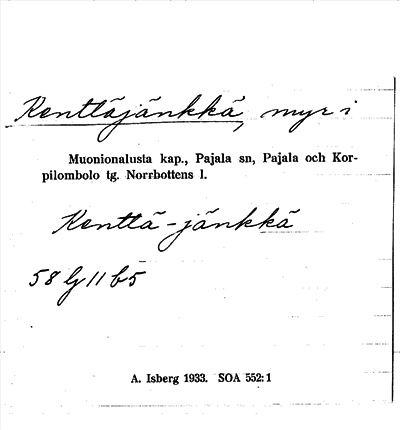 Kenttäjänkkä, myr i
Muonionalusta kap., Pajala sn, Pajala och Kor-
pilombolo tg. Norrbottens l.
Kenttä-jänkkä
58 lj 11 b5
A. Isberg 1933. SOA 552:1